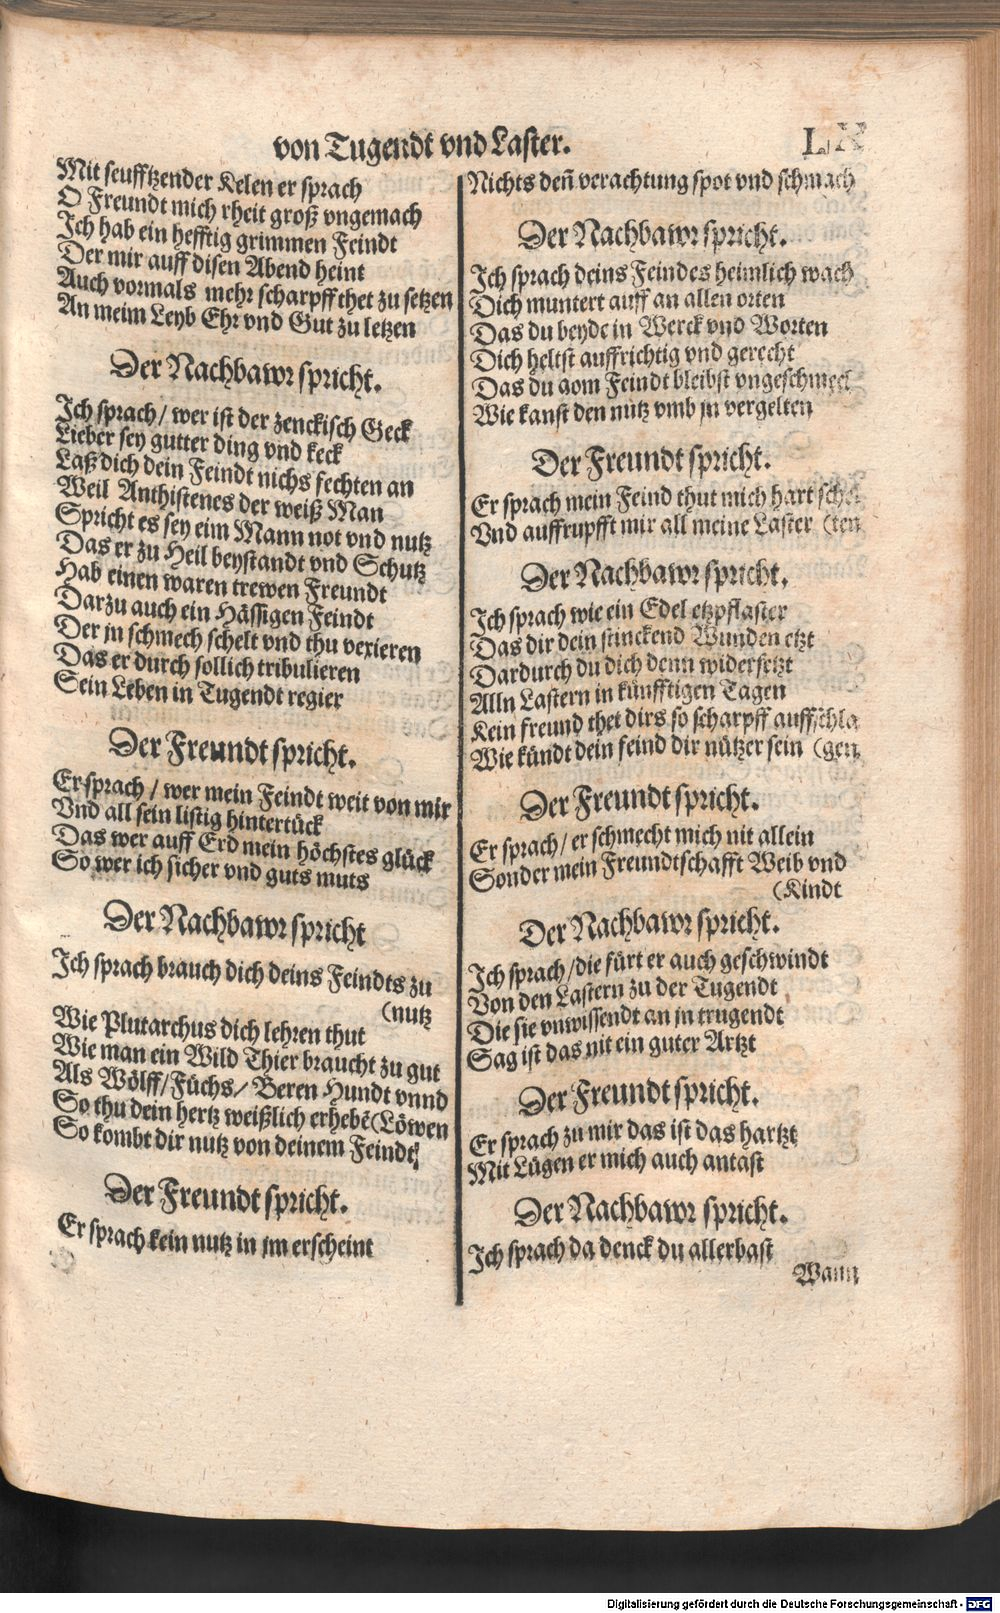 von Tugendt vnd Laster.
LX
Mit seufftzender Kelen er sprach
O Freundt mich rheit groß vngemach
Ich hab ein hefftig grimmen Feindt
Der mir auff disen Abend heint
Auch vormals mehr scharpff thet zu setzen
An meim Leyb Ehr vnd Gut zu letzen
Der Nachbawr spricht.
Ich sprach / wer ist der zenckisch Geck
Lieber sey gutter ding vnd keck
Laß dich dein Feindt nichs fechten an
Weil Anthistenes der weiß Man
Spricht es sey eim Mann not vnd nutz
Das er zu Heil beystandt vnd Schutz
Hab einen waren trewen Freundt
Darzu auch ein Hässigen Feindt
Der jn schmech schelt vnd thu vexieren
Das er durch sollich tribulieren
Sein Leben in Tugendt regier
Der Freundt spricht.
Er sprach / wer mein Feindt weit von mir
Vnd all sein listig hintertück
Das wer auff Erd mein höchstes glück
So wer ich sicher vnd guts muts
Der Nachbawr spricht
Ich sprach brauch dich deins Feindts zu
(nutz
Wie Plutarchus dich lehren thut
Wie man ein Wild Thier braucht zu gut
Als Wölff / Füchs / Beren Hundt vnnd
So thu dein hertz weißlich erhebē (Löwen
So kombt dir nutz von deinem Feindt!
Der Freundt spricht.
Er sprach kein nutz in jm erscheint
Nichts deñ verachtung spot vnd schmach
Der Nachbawr spricht.
Ich sprach deins Feindes heimlich wach
Dich muntert auff an allen orten
Das du beyde in Werck vnd Worten
Dich heltst auffrichtig vnd gerecht
Das du vom Feindt bleibst vngeschmecht
Wie kanst den nutz vmb jn vergelten
Der Freundt spricht.
Er sprach mein Feind thut mich hart schel
Vnd auffrupfft mir all meine Laster (ten
Der Nachbawr spricht.
Ich sprach wie ein Edel etzpflaster
Das dir dein stinckend Wunden etzt
Dardurch du dich denn widersetzt
Alln Lastern in künfftigen Tagen
Kein freund thet dirs so scharpff auffschla
Wie kündt dein feind dir nützer sein (gen
Der Freundt spricht.
Er sprach / er schmecht mich nit allein
Sonder mein Freundtschafft Weib vnd
(Kindt
Der Nachbawr spricht.
Ich sprach / die fürt er auch geschwindt
Von den Lastern zu der Tugendt
Die sie vnwissendt an jn trugendt
Sag ist das nit ein guter Artzt
Der Freundt spricht.
Er sprach zu mir das ist das hartzt
Mit Lügen er mich auch antast
Der Nachbawr spricht.
Ich sprach da denck du allerbast
Wann
Digitalisierung gefördert durch die Deutsche Forschungsgemeinschaft - DFG